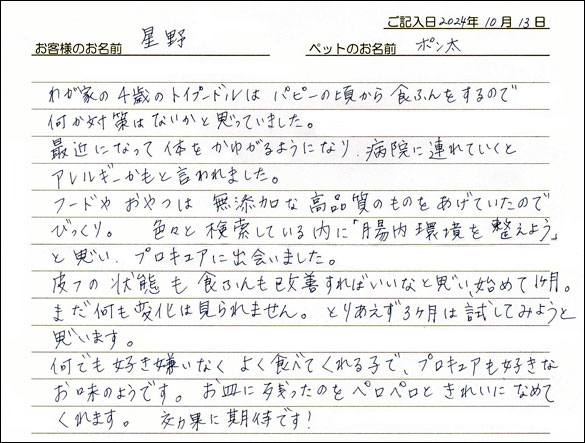 ご記入日2024年10月13日
お客様のお名前 星野 ペットのお名前 ポン太
わが家の4歳のトイプードルは パピーの頃から 食ふんをするので
何か対策はないかと思っていました。
最近になって 体をかゆがるようになり、病院に連れていくと
アレルギーかもと言われました。
フードや おやつは 無添加な 高品質のものをあげていたので
びっくり。 色々と検索している内に「腸内環境を整えよう」
と思い、プロキュアに出会いました。
皮フの状態も 食ふんも改善すればいいなと思い始めて1ケ月。
まだ何も変化は見られません。 とりあえず3ケ月は試してみようと
思います。
何でも好き嫌いなく よく食べてくれる子で、プロキュアも好きな
お味のようです。 お皿に残ったのをペロペロと きれいに なめて
くれます。 効果に期待です!